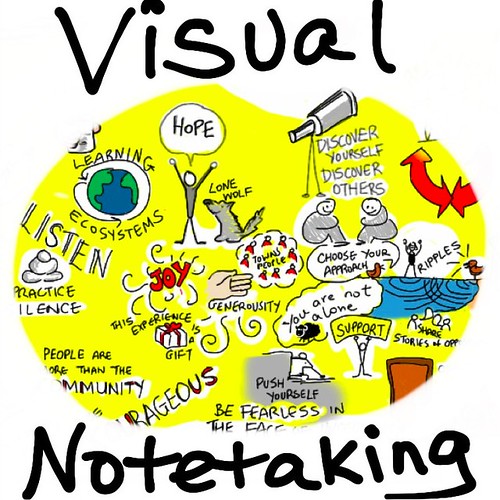 Visual
HOPE
LEARNING
ECOSYSTEMS
LONE
WOLF
DISCOVER
YOURSELF
DISCOVER
OTHERS
LISTEN
PRACTICE
ILENCE
JOY
TOWNS
PEOPLE
CHOOSE YOUR
APPROACH
RIPPLES!
GENEROUSITY
THIS EXPERIENCE
IS
A
GIFT
You are not
alone
SUPPORT
SHARE
STORIES OF OPP
PEOPLE ARE
ORE THAN THE
OMMUNITY
PUSH
YOURSELF
URAGEOUS
BE FEARLESS IN
THE FACE
Notetaking